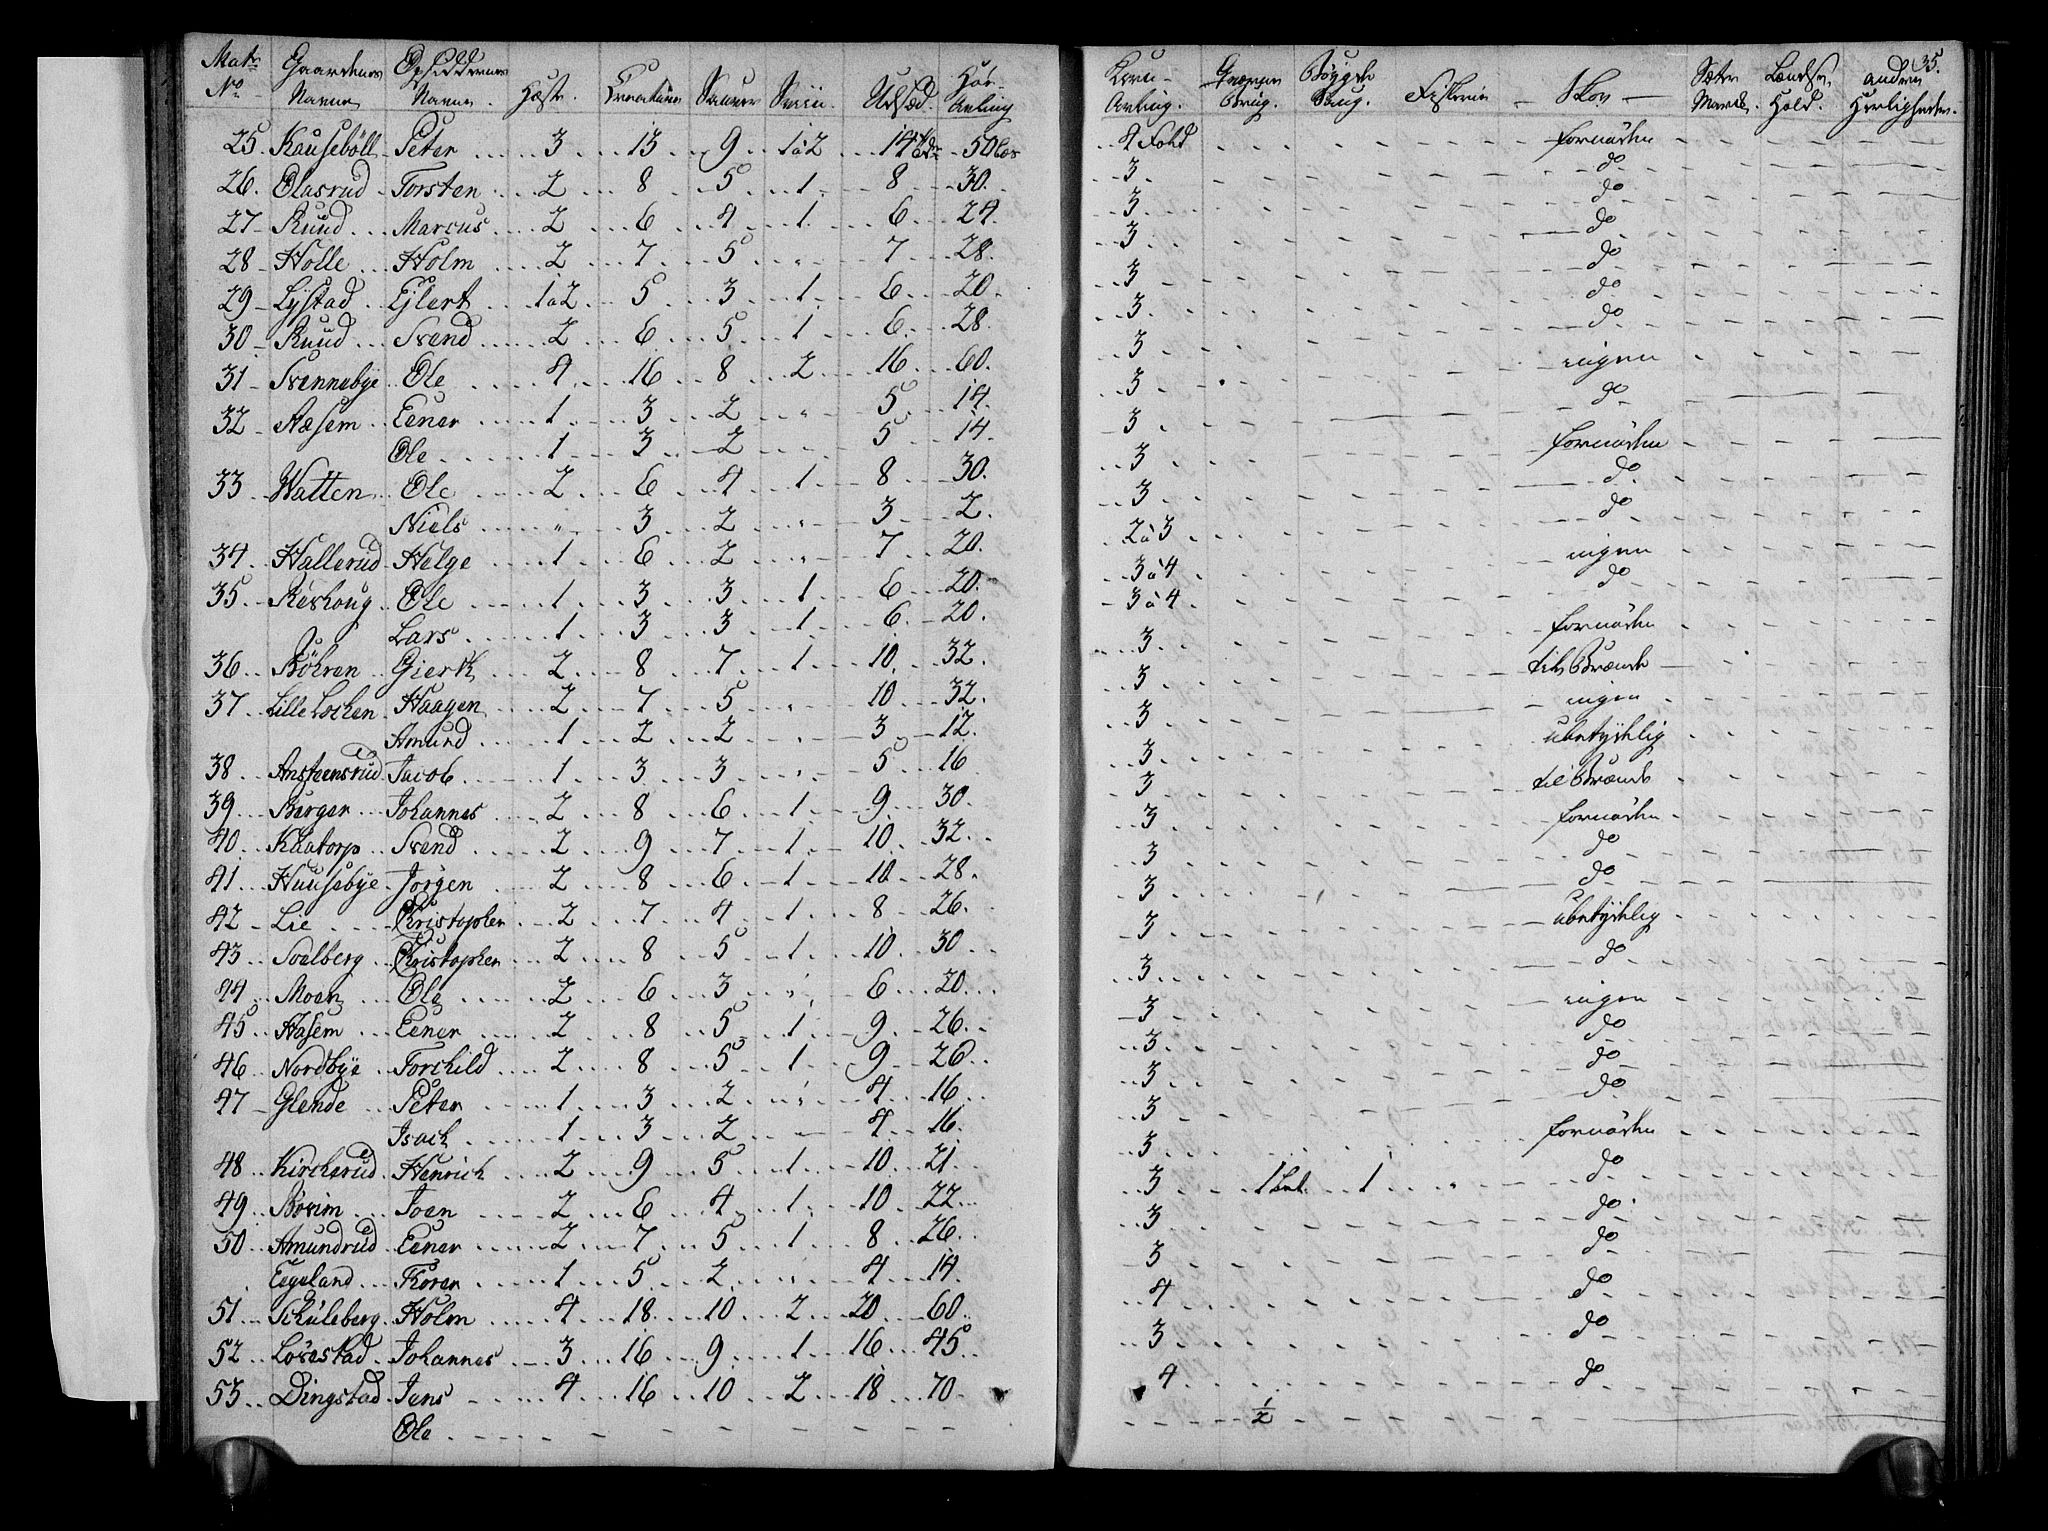 35.
Matr. No Gaardenes Navne Opsiddernes Navne. Heste. Creature Sauer Sviin. Udsæd. Höe-Avling
25 Kausebøll Peter 3 13 9 1 a 2 14 Tdr 50 Læs
26. Olasrud Torsten 2 8 5 1 8 30.
27 Ruud Marcus 2 6 4 1 6 24
28 Holle Holm 2 7 5 " 7 28
29 Lystad Ejlert 1 a 2 5 3 1 6 20
30 Ruud Svend 2 6 5 1 6 28.
31 Svennebye Ole 4 16 8 2 16 60.
32 Aasem Eener 1 3 2 " 5 14.
Ole 1 3 2 5 14.
33 Watten Ole 2 6 4 1 8 30.
Niels " 3 2 " 3 2.
34 Hallerud Helge 1 6 2 " 7 20.
35 Reshoug Ole 1 3 3 1 6 20.
Lars 1 3 3 1 6 20.
36 Böhren Gierth 2 8 7 1 10 32.
37 Lille Lochen Haagen 2 7 5 " 10 32.
Amund 1 2 2 " 3 12.
38 Ansteensrud Jacob 1 3 3 " 5 16
39 Berger Johannes 2 8 6 1 9 30.
40 Kaatorp Svend 2 9 7 1 10 32.
41 Huusebye Jörgen 2 8 6 1 10 28.
42 Lie Christopher 2 7 4 1 8 26.
43 Soelberg Christopher 2 8 5 1 10 30
44 Moen Ole 2 6 3 " 6 20.
45 Aasem Eener 2 8 5 1 9 26.
46 Nordbye Torchild 2 8 5 1 9 26.
47 Glende Peter 1 3 2 " 4 16
Isach 1 3 2 4 16.
48 Kircherud Henrich 2 9 5 1 10 21
49 Börim Joen 2 6 4 1 10 22
50 Amundrud Eener 2 7 5 1 8 26.
Eegeland Thoren 1 5 2 " 4 14.
51 Schuleberg Holm 4 18 10 2 20 60
52 Lövestad Johannes 3 16 9 1 16 45
53 Dingstad Jens 4 16 10 2 18 70
Ole
Korn-Avling. Qværne Brug. Bøygde Saug. Fiskerie Skov Sæter Marck. Lændse, Hold. andre Herligheder.
4 Fold fornöden
3 do
3 do
3 do
3 do
3 do
3 do
3 ingen
3 do
3 fornöden
3 do
2 à 3 do
3 à 4 ingen
3 à 4 do
3 fornöden
3 til Brænde
3 ingen
3 ubetydelig
3 til Brænde
3 fornöden
3 do
3 do
3 ubetydelig
3 do
3 ingen
3 do
3 do
3 do
3 fornöden
3 1 1 do
3 do
3 do
4 do
3 do
4 do
1/2